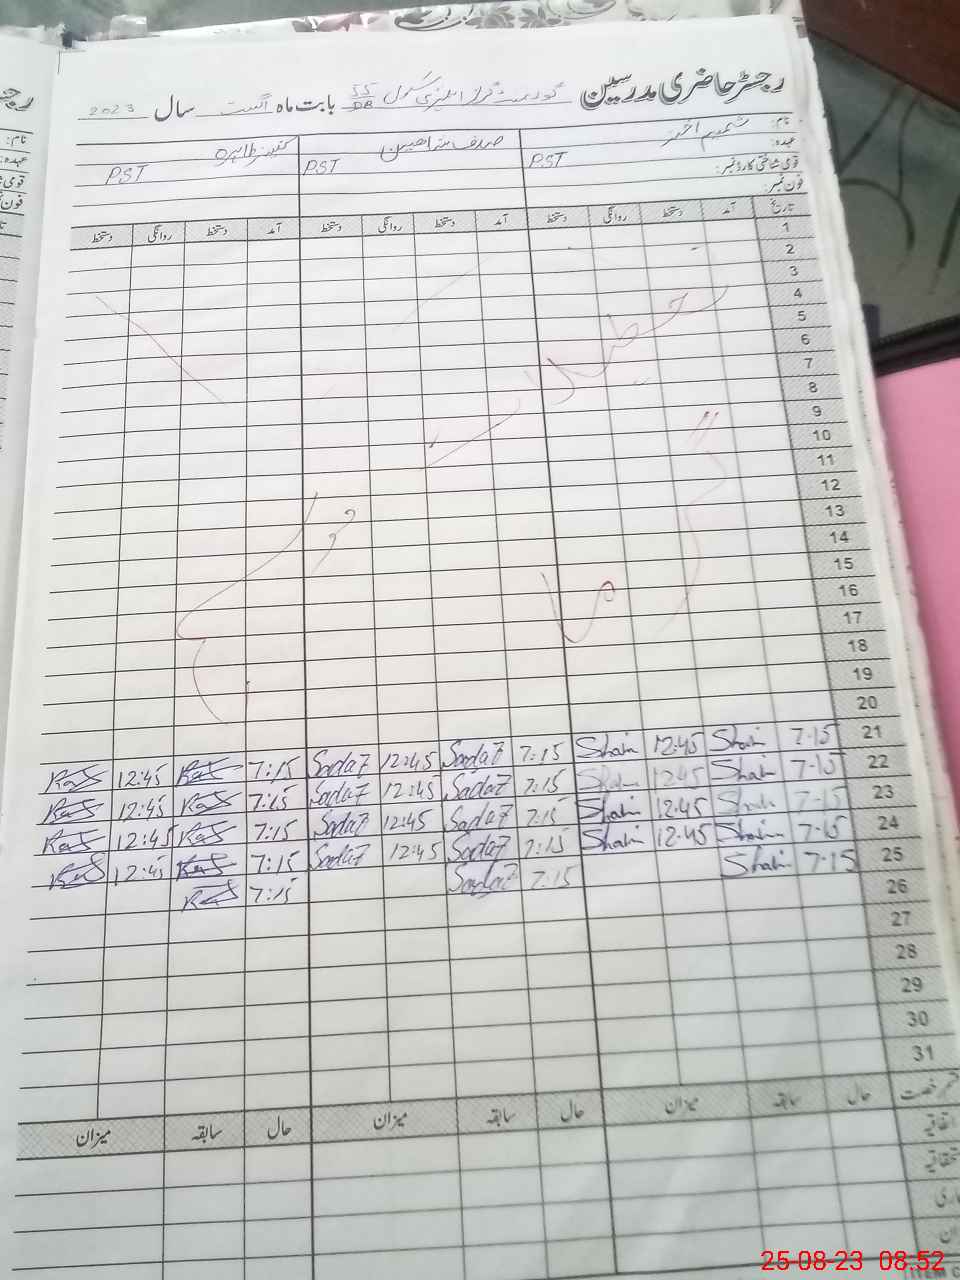 رجسٹر حاضری مدرسین گورنمنٹ گرلز ایلیمنٹری سکول 55/DB بابت ماہ اگست سال 2023
نام: شمیم اختر صدف شاھین کنیز طاہرہ
عہدہ: PST PST PST
قومی شناختی کارڈ نمبر:
فون نمبر:
تاریخ آمد دستخط روانگی دستخط آمد دستخط روانگی دستخط آمد دستخط روانگی دستخط
1
2
3
4
5
6
7
8
9
10
11
12
13
14
15
16
17
18
19
20
تعطیلات موسم گرما
21 7-15 Shahi 12:45 Shahi 7:15 Sadaf 12:45 Sadaf 7:15 12:45
22 7-15 Shahi 12:45 Shahi 7:15 Sadaf 12:45 Sadaf 7:15 12:45
23 7-15 Shahi 12:45 Shahi 7:15 Sadaf 12:45 Sadaf 7:15 12:45
24 7-15 Shahi 12:45 Shahi 7:15 Sadaf 12:45 Sadaf 7:15 12:45
25 7-15 Shahi 7:15 Sadaf 7:15
26
27
28
29
30
31
حال سابقہ میزان حال سابقہ میزان حال سابقہ میزان
اتفاقیہ
25-08-23 08.52